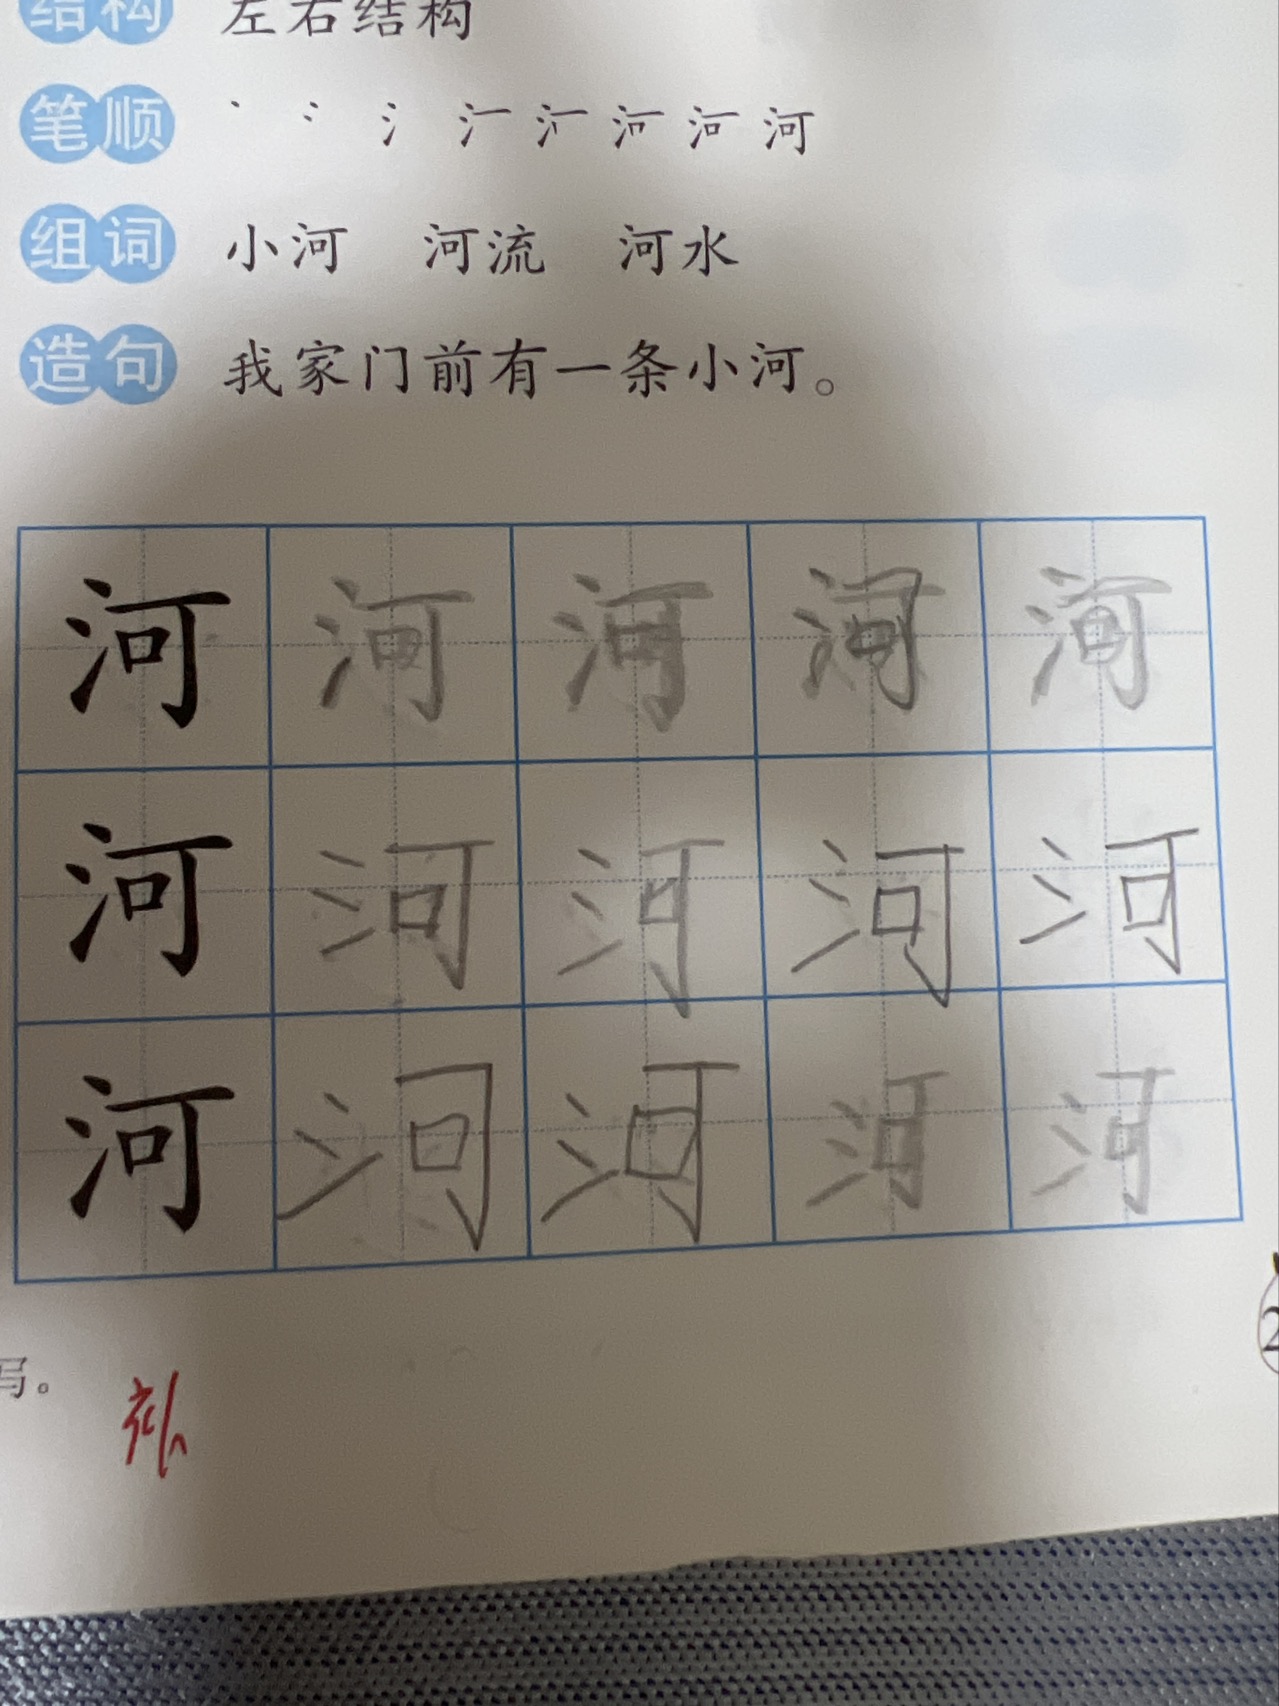 结构 左右结构
笔顺 丶 冫 氵 河
组词 小河 河流 河水
造句 我家门前有一条小河。
河 河 河 河 河
河 河 河 河 河
河 河 河 河 河
写。
2